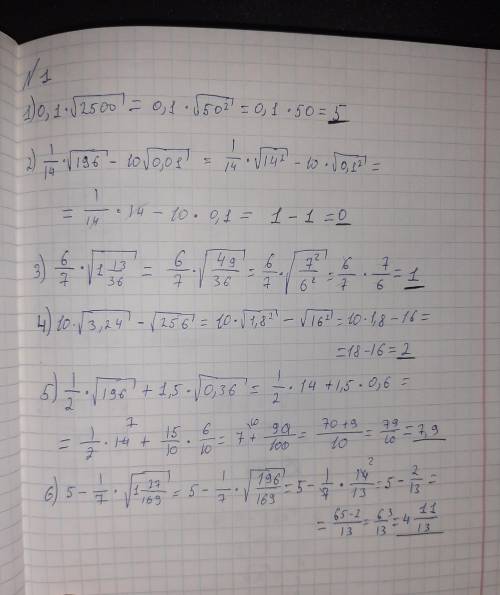 №1
1) 0,1·√2500 = 0,1·√50² = 0,1·50 = 5
2) 1/14·√196 - 10√0,01 = 1/14·√14² - 10·√0,1² =
= 1/14·14 - 10·0,1 = 1 - 1 = 0
3) 6/7·√1 13/36 = 6/7·√49/36 = 6/7·√7²/6² = 6/7·7/6 = 1
4) 10·√3,24 - √256 = 10·√1,8² - √16² = 10·1,8 - 16 =
= 18 - 16 = 2
5) 1/2·√196 + 1,5·√0,36 = 1/2·14 + 1,5·0,6 =
= 1/2·14 7 + 15/10·6/10 = 7 10 + 90/100 = 70+9/10 = 79/10 = 7,9
6) 5 - 1/7·√1 27/169 = 5 - 1/7·√196/169 = 5 - 1/7·14 2/13 = 5 - 2/13 =
= 65-2/13 = 63/13 = 4 11/13